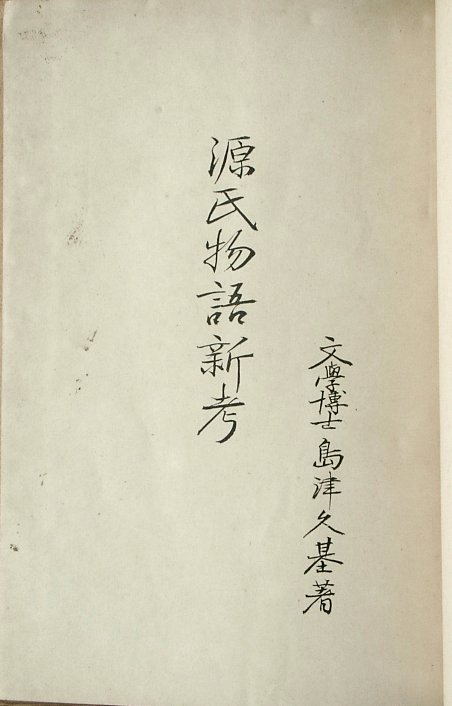 文學博士 島津久基著
源氏物語新考